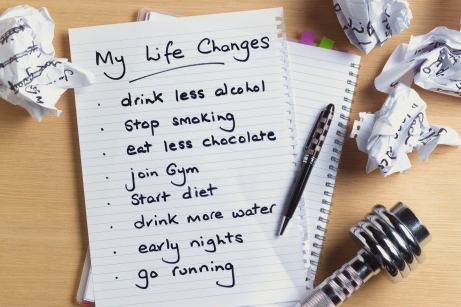 My Life Changes
· drink less alcohol
· Stop smoking
· eat less chocolate
· join Gym
· Start diet
· drink more water
· early nights
· go running